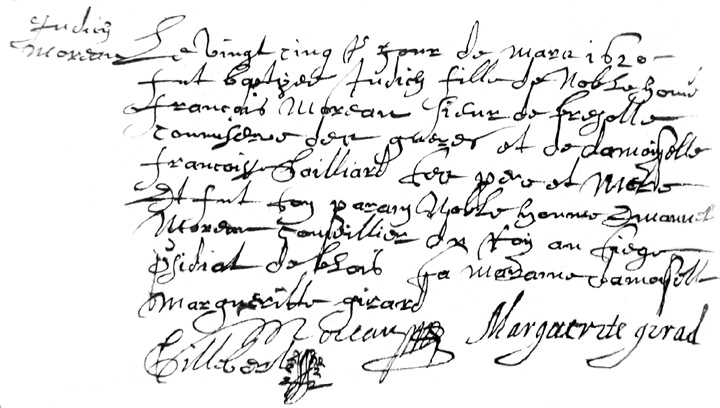 Judich
Moreau
Le vingt cinq jour de mars 1620
fut baptizee Judich fille de Noble home
françois Moreau sieur de
commisere des gueres et de damoyselle
francoise Gailliard ses pere et Mere
Et fut son parain Noble homme Emanuel
Moreau Conseillier du Roy au siege
psidial de blois sa maraine damoyselle
Margueritte girard
Moreau Marguerite girad
Gillebert